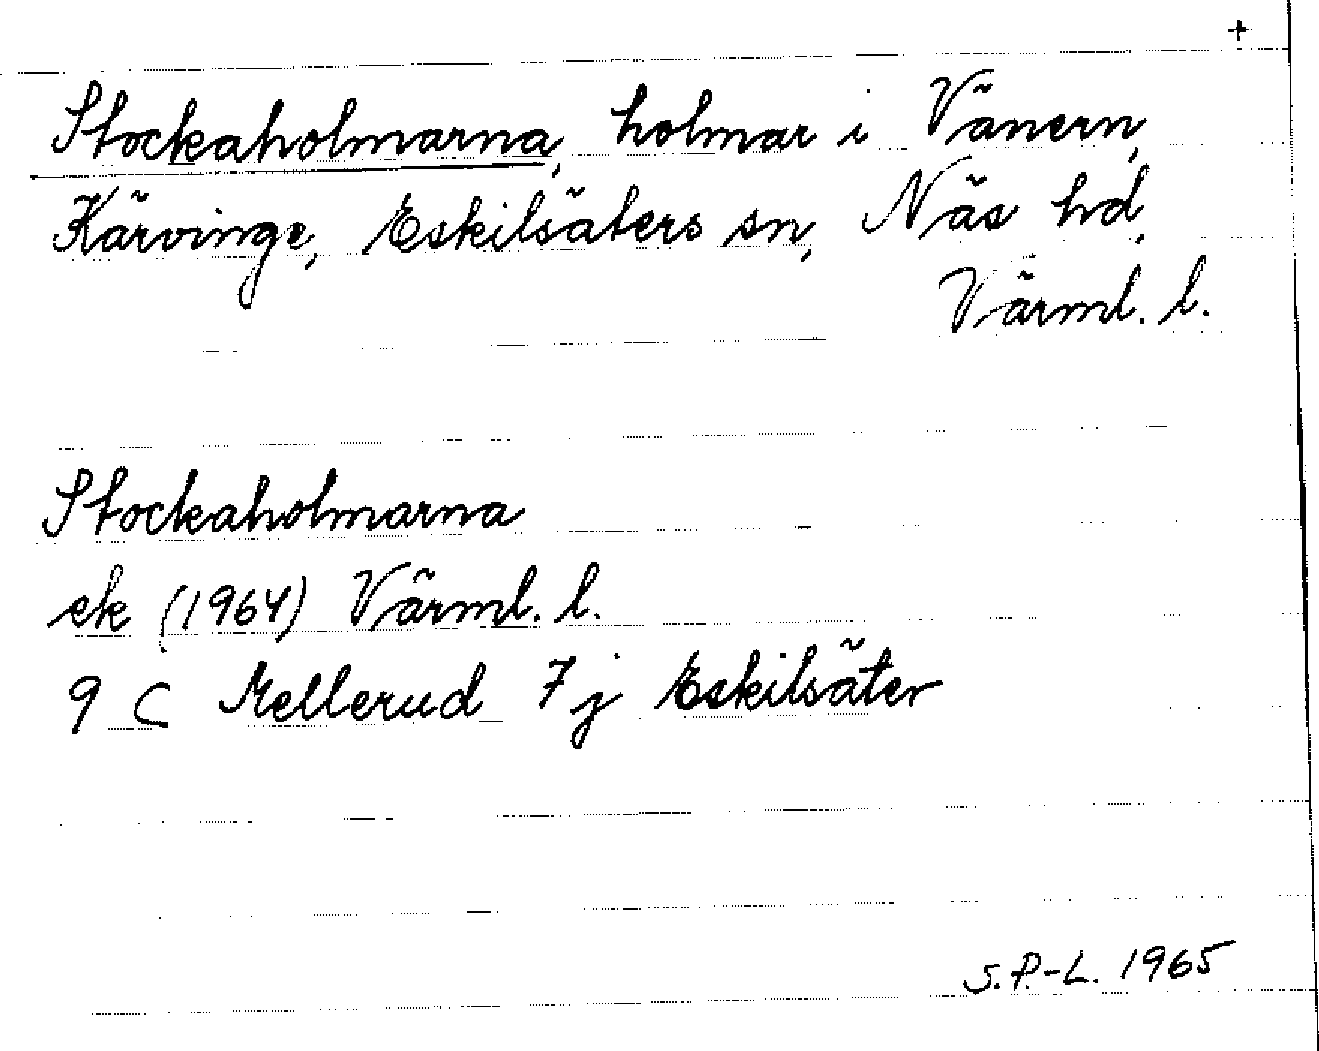 +
Stockaholmarna, holmar i Vänern,
Kärvinge, Eskilsäters sn, Näs hd,
Värml. l.
Stockaholmarna
ek (1964) Värml. l.
9 C Mellerud 7 j Eskilsäter
S.P.-L. 1965